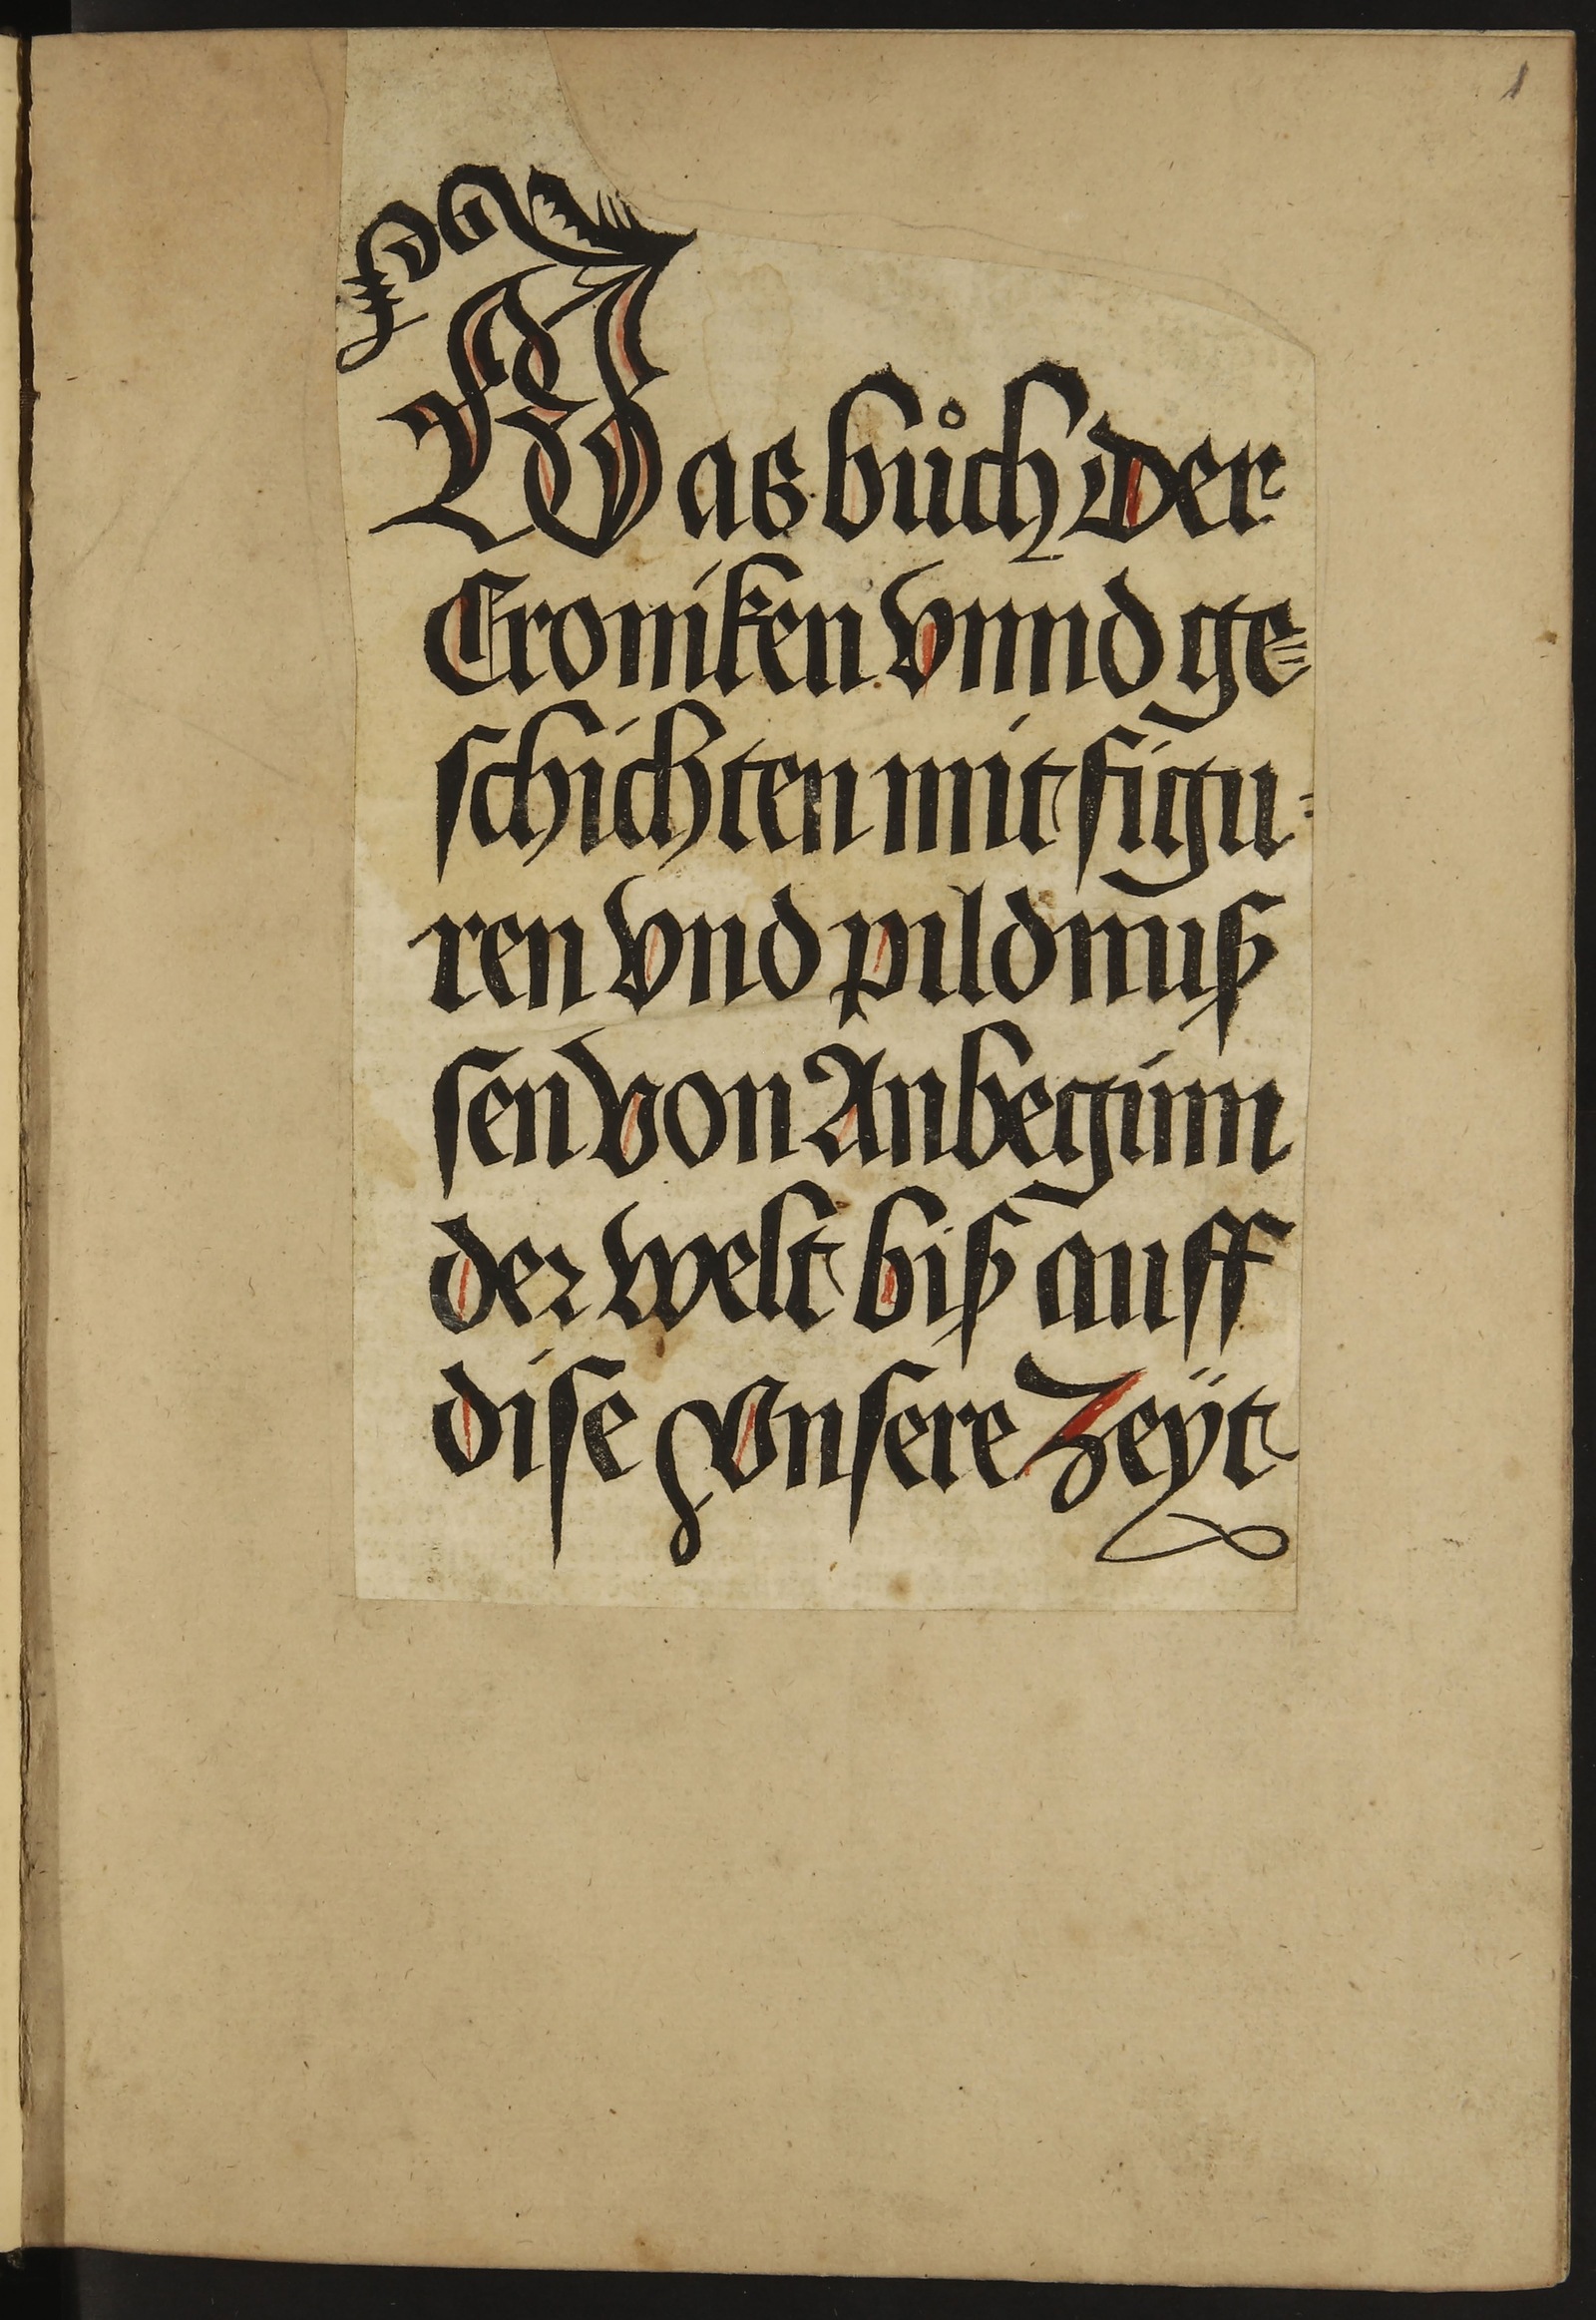 1
Das bůch der
Croniken vnnd ge=
schichten mit figu=
ren vnd pildnuß
sen von Anbeginn
der welt biß auff
dise vnsere Zeÿt